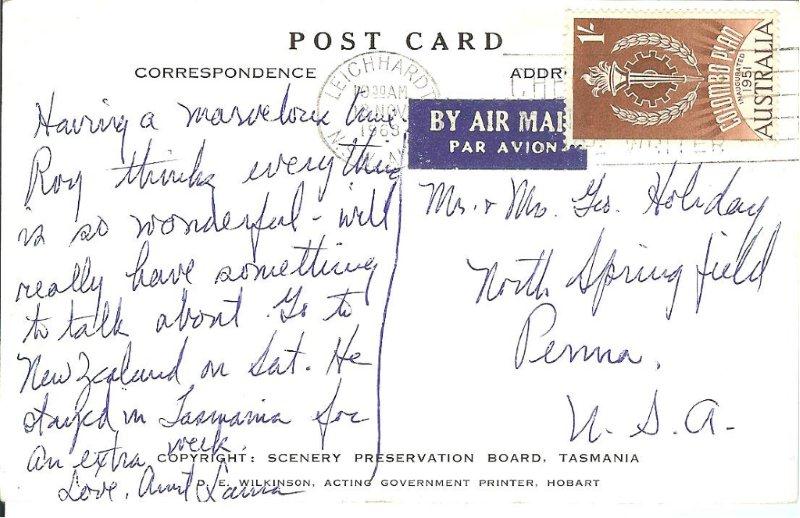 POST CARD
CORRESPONDENCE
ADDR
LEICHHARDT
10 30 AM
NOV
1963
BY AIR MAI
PAR AVION
1/-
COLOMBO PLAN
INAUGURATED 1951
AUSTRALIA
Having a marvelous time.
Roy thinks everything
is so wonderful - will
really have something
to talk about. Go to
New Zealand on Sat. He
stayed in Tasmania for
an extra week.
Love, Aunt Laura
Mr. & Mrs. Geo. Holiday
North Springfield
Penna.
U.S.A.
COPYRIGHT: SCENERY PRESERVATION BOARD, TASMANIA
D. E. WILKINSON, ACTING GOVERNMENT PRINTER, HOBART